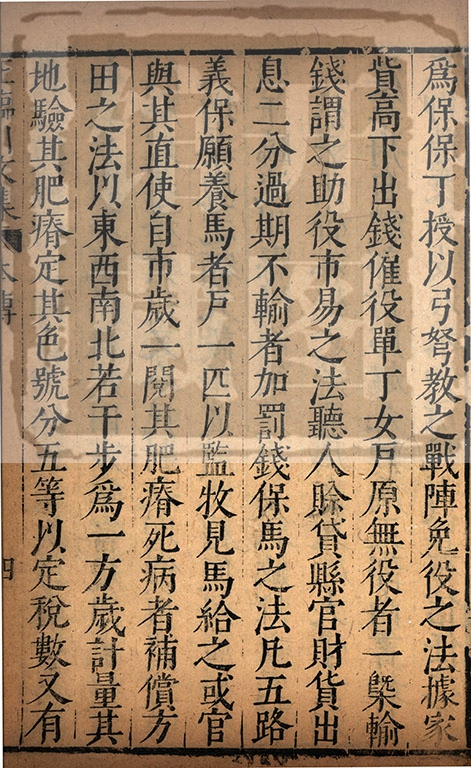 爲保保丁授以弓弩教之戰陣免役之法據家
貲高下出錢僱役單丁女戸原無役者一槩輸
錢謂之助役市易之法聽人賒貸縣官財貨出
息二分過期不輸者加罰錢保馬之法凡五路
義保願養馬者戸一匹以監牧見馬給之或官
與其直使自市歲一閱其肥瘠死病者補償方
田之法以東西南北若干步爲一方歲計量其
地驗其肥瘠定其色號分五等以定稅數又有
王臨川文集 本傳 四